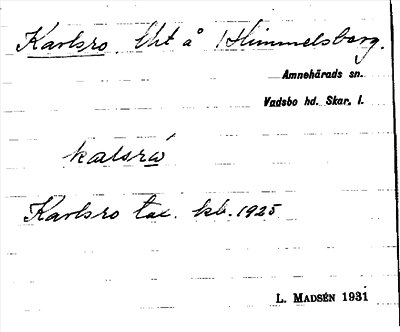 Karlsro. Uht å 1 Himmelsberg.
Amnehärads sn.
Vadsbo hd. Skar. l.
kalsrò
Karlsro tax. kb. 1925
L. MADSÉN 1931